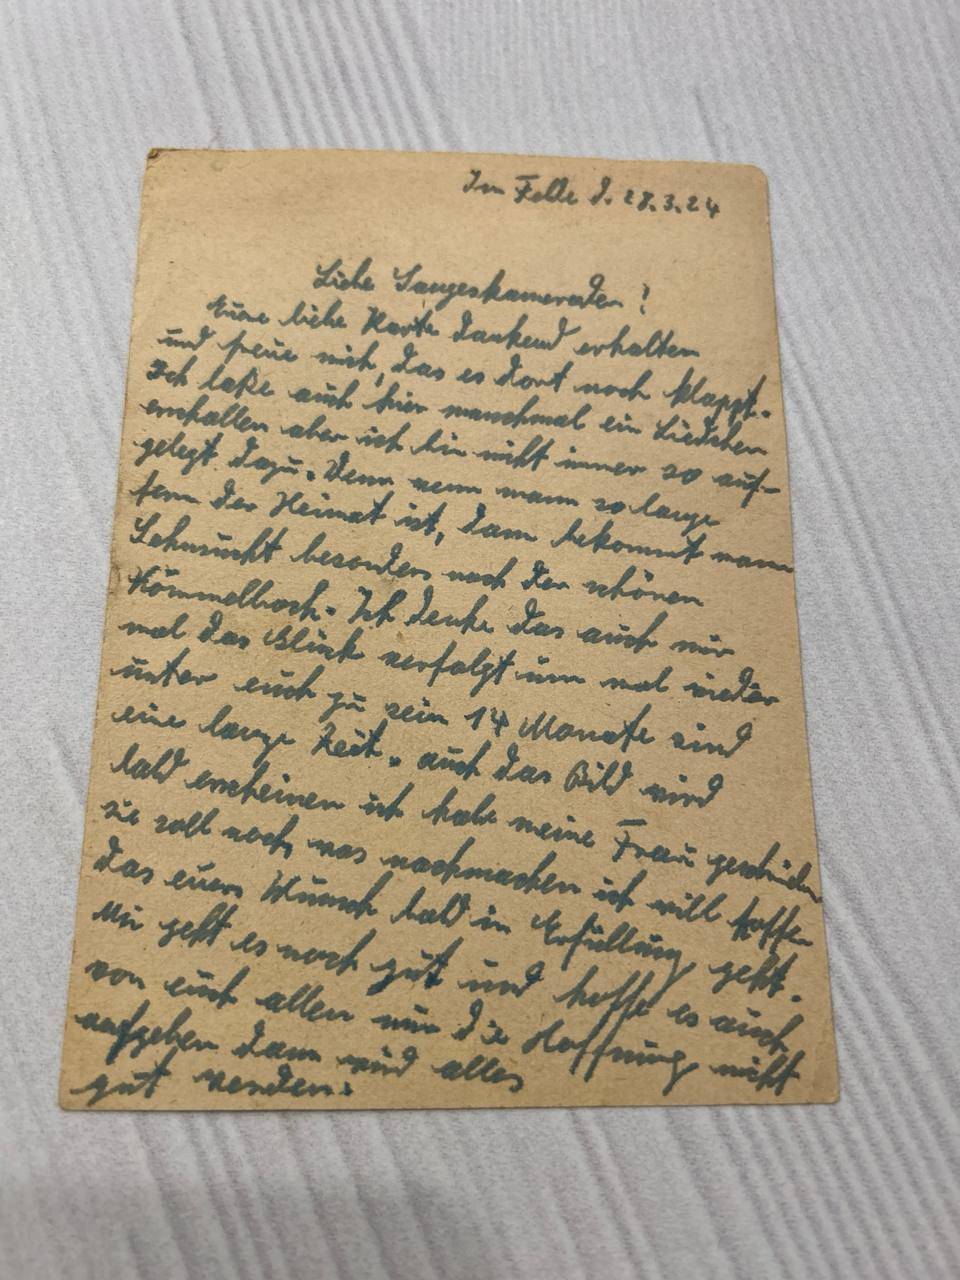 Im Felde d. 28.3.24
Liebe Sangeskameraden!
Eure liebe Karte dankend erhalten
und freue mich, das es dort noch klappt.
Ich laße auch hier manchmal ein Liedchen
erschallen aber ich bin nicht immer so auf-
gelegt dazu. Denn wenn mann so lange
fern der Heimat ist, dann bekommt mann
Sehnsucht besonders nach den schönen
Ich denke das auch mir
mal das Glück verfolgt um mal wieder
unter euch zu sein 14 Monate sind
eine lange Zeit. auch das Bild wird
bald erscheinen ich habe meine Frau geschrieben
sie soll noch was nachmachen ich will hoffen
das euern Wunsch bald in Erfüllung geht.
Mir geht es noch gut und hoffe es auch
von euch allen nur die Hoffnung nicht
aufgeben dann wird alles
gut werden.